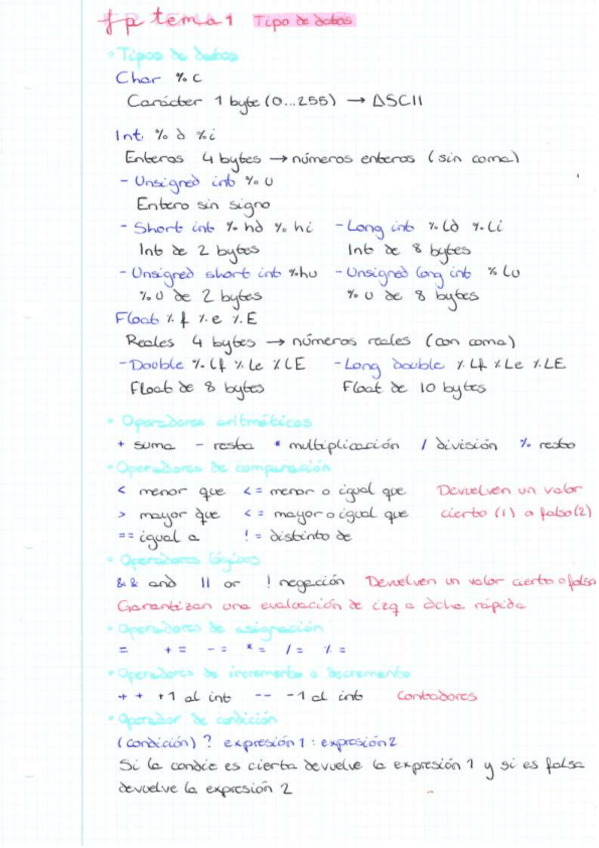 fp tema 1 Tipo de datos
• Tipos de datos
Char %c
Carácter 1 byte (0...255) → ASCII
Int %d %i
Enteros 4 bytes → números enteros (sin coma)
- Unsigned int %u
Entero sin signo
- Short int %hd %hi - Long int %ld %li
Int de 2 bytes Int de 8 bytes
- Unsigned short int %hu - Unsigned long int %lu
%u de 2 bytes %u de 8 bytes
Float %f %e %E
Reales 4 bytes → números reales (con coma)
- Double %lf %le %lE - Long double %Lf %Le %LE
Float de 8 bytes Float de 10 bytes
• Operadores aritméticos
+ suma - resta * multiplicación / división % resto
• Operadores de comparación
< menor que <= menor o igual que Devuelven un valor
> mayor que <= mayor o igual que cierto (1) o falso(2)
== igual a != distinto de
• Operadores lógicos
&& and || or ! negación Devuelven un valor cierto o falso
Garantizan una evaluación de izq a dcha rápida
• Operadores de asignación
= += -= *= /= %=
• Operadores de incremento o decremento
++ +1 al int -- -1 al int Contadores
• Operador de condición
(condición) ? expresión1 : expresión2
Si la condic es cierta devuelve la expresión 1 y si es falsa
devuelve la expresión 2